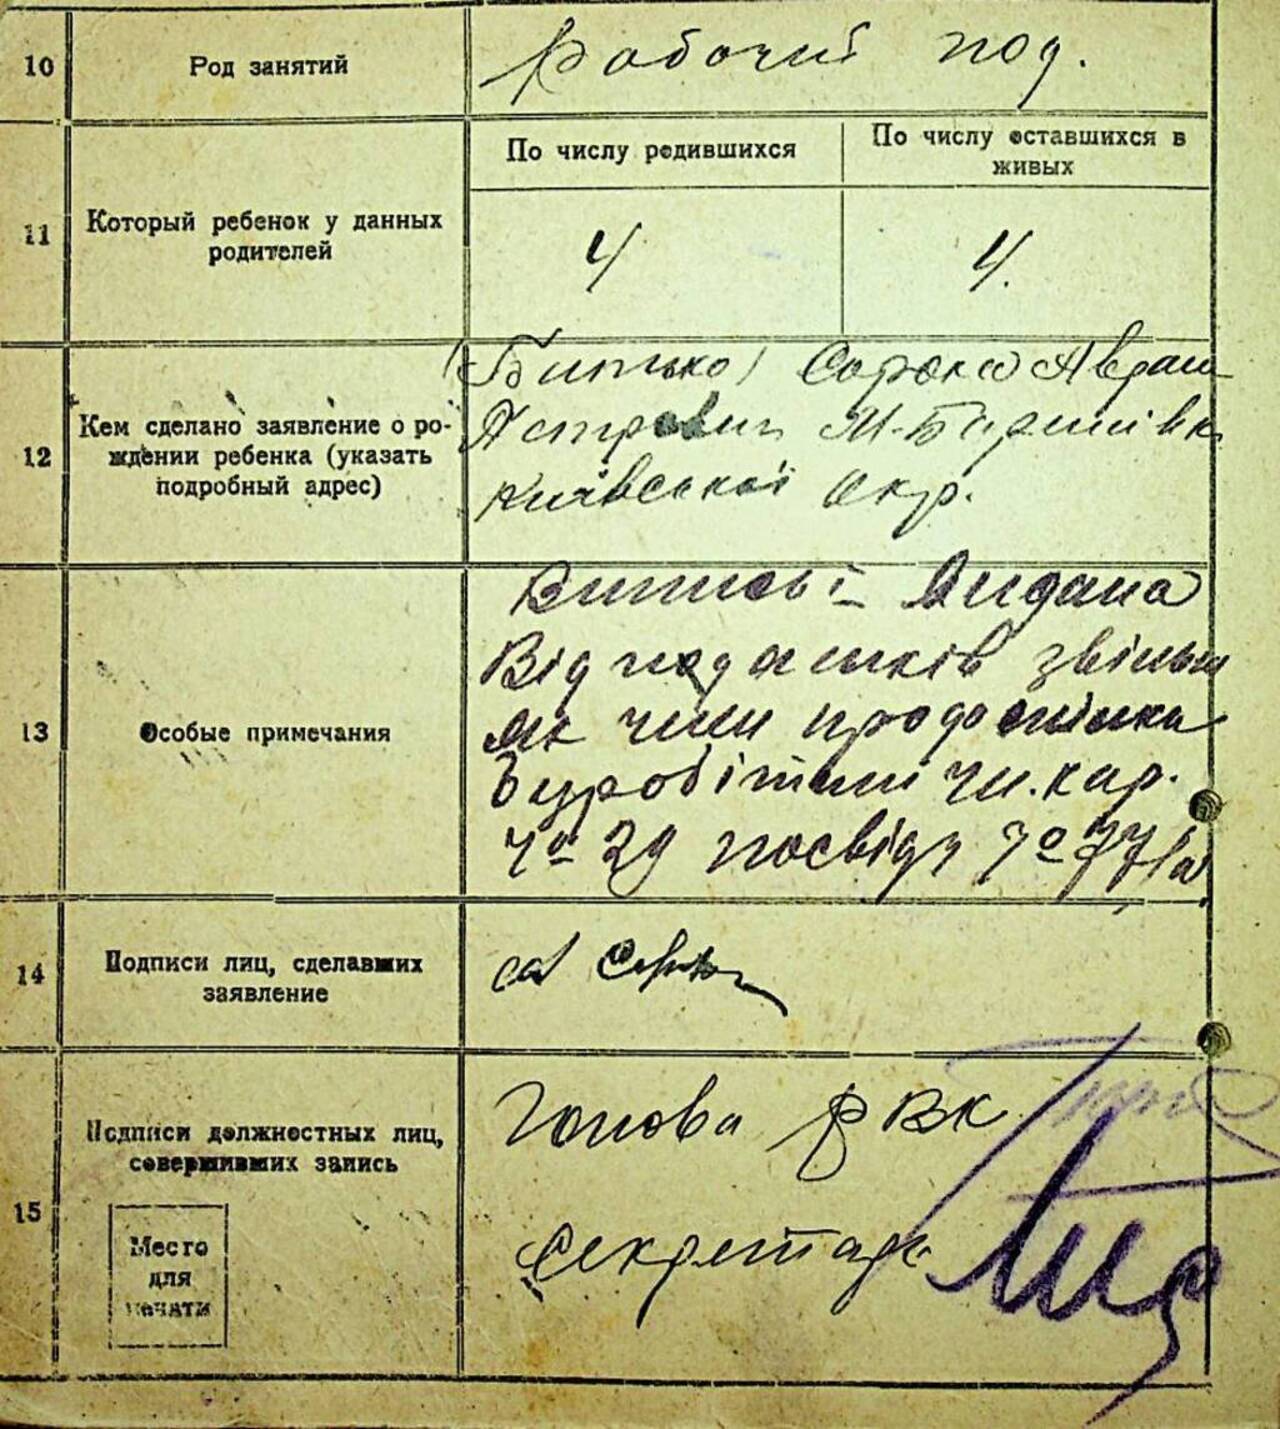 10
Род занятий
Рабочий под.
11
Который ребенок у данных
родителей
По числу родившихся
По числу оставшихся в
живых
4
4.
12
Кем сделано заявление о ро-
ждении ребенка (указать
подробный адрес)
(Батько) Сорока Аврам
Петрович М-Баришівк
Київської Окр.
13
Особые примечания
Виписі – Видана
Від податків звільн
як член
чл. кар.
№ 29 посвідч № 77
14
Подписи лиц, сделавших
заявление
15
Подписи должностных лиц,
совершивших запись
Место
для
печати
Голова РВК
Секретарь